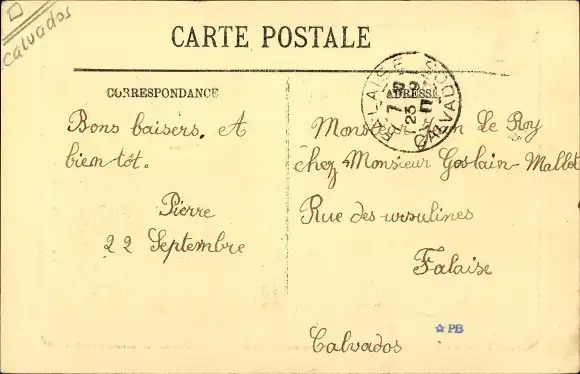 Calvados
calvados
CARTE POSTALE
CORRESPONDANCE
ADRESSE
FALAISE CALVADOS
23 9
Bons baisers. A
bientôt.
Pierre
22 Septembre
Monsieur Le Roy
chez Monsieur Goslain-Mallet
Rue des ursulines
Falaise
Calvados
PB